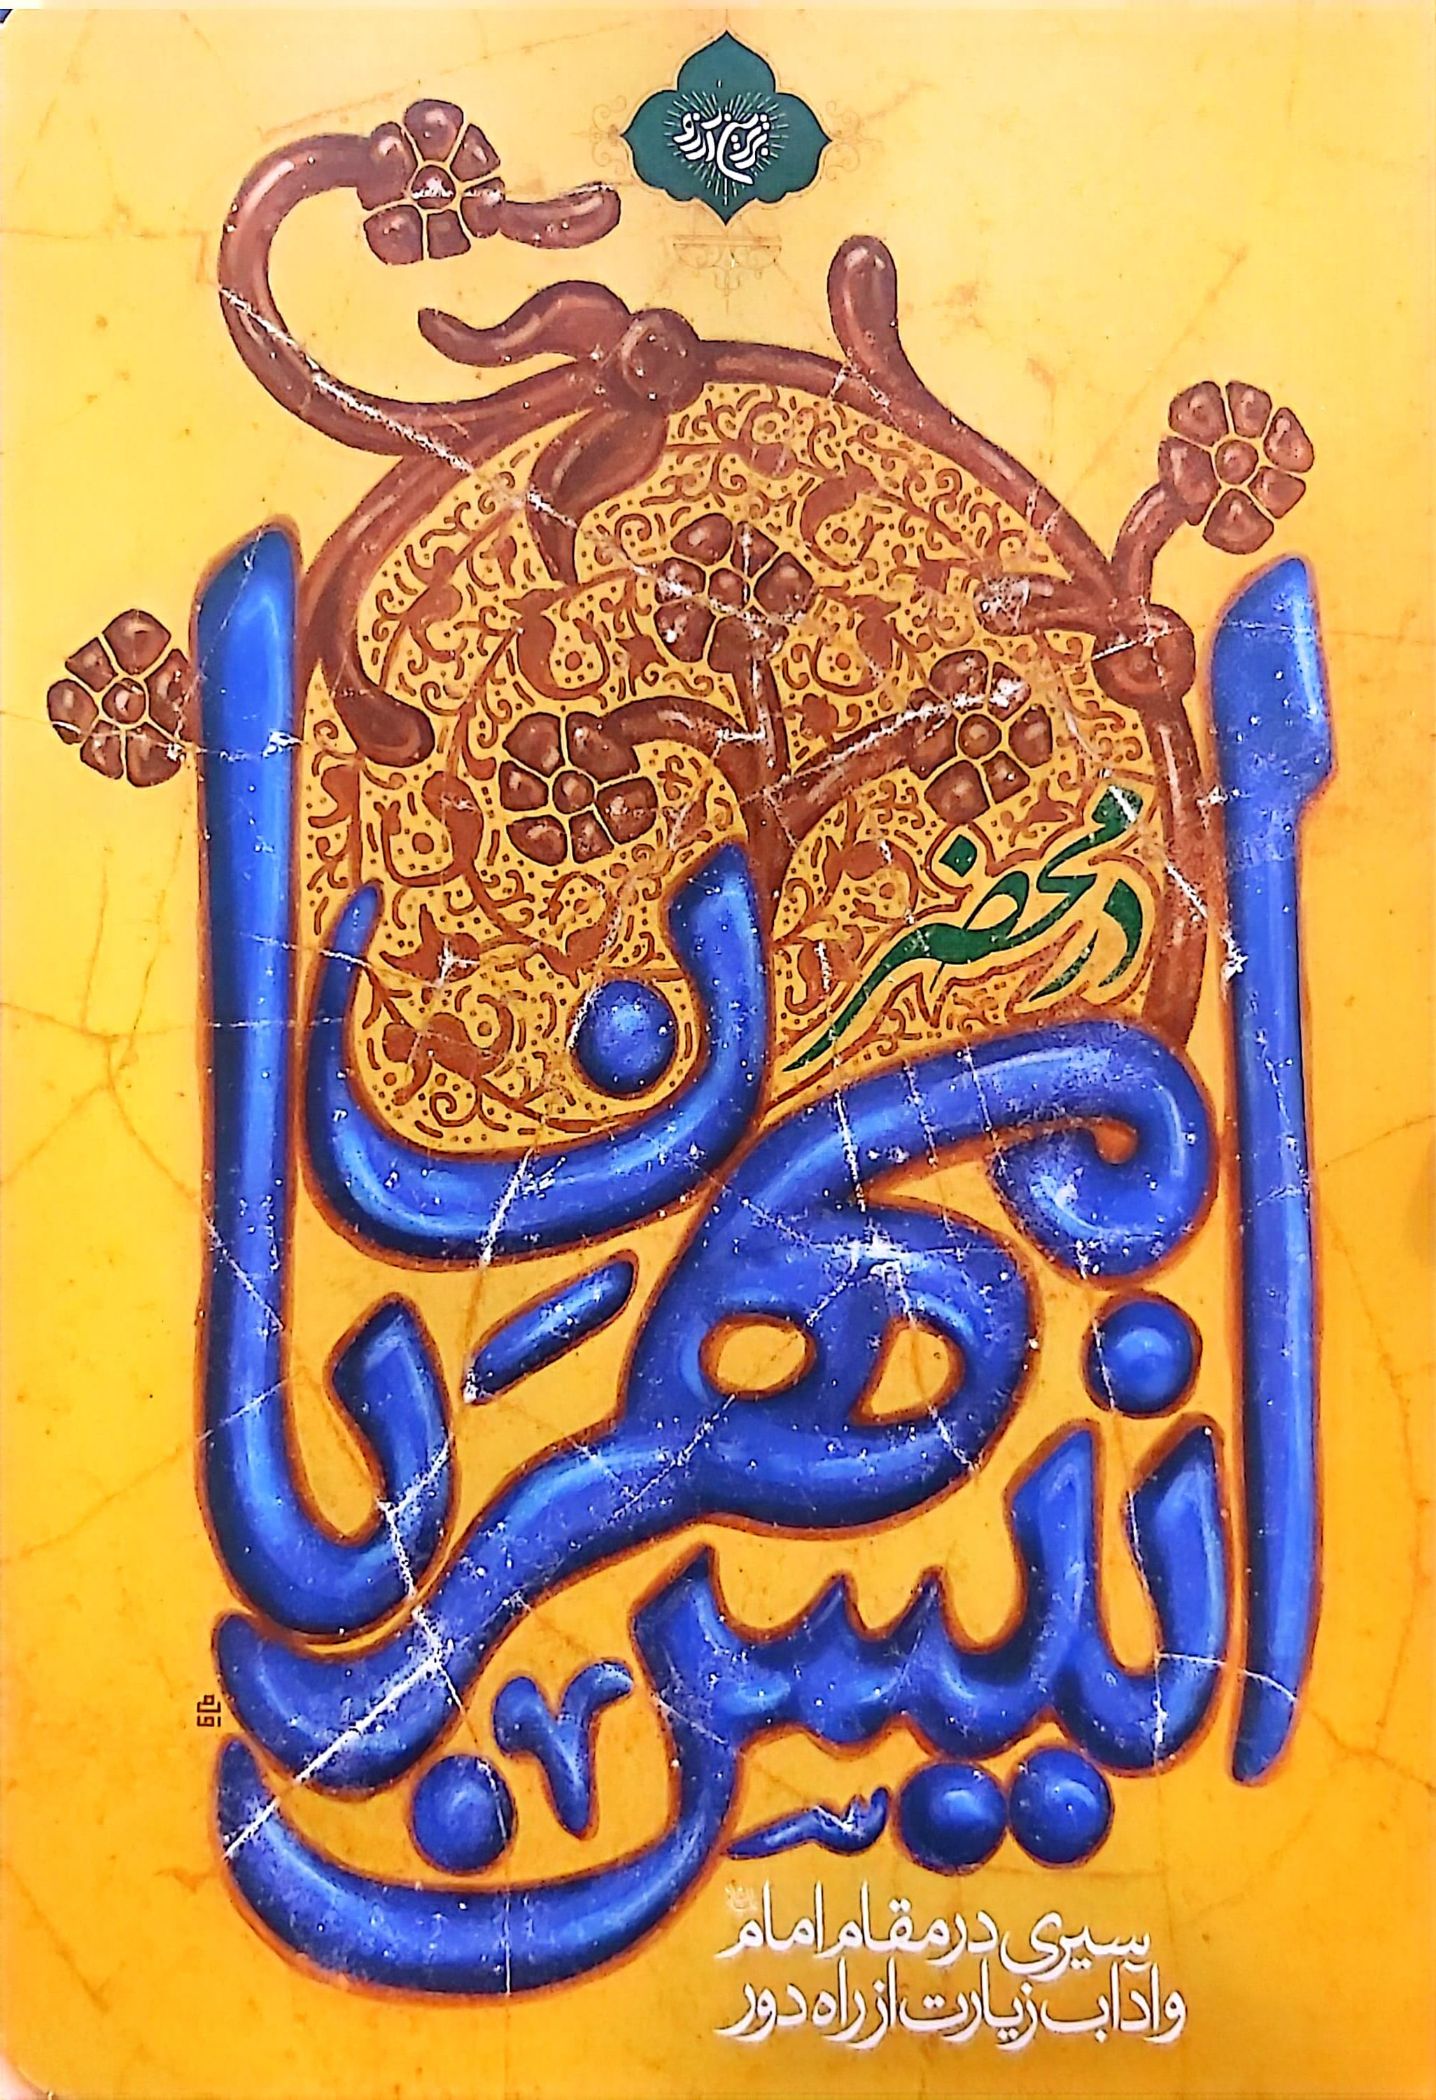 در محضر
انیس مهربان
سیری در مقام امام
و آداب زیارت از راه دور